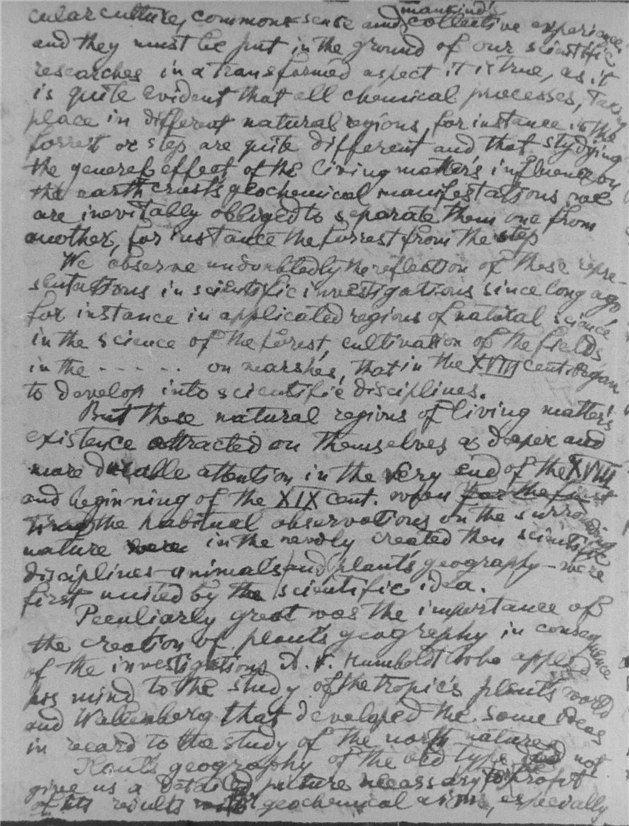 cular culture, common sense and mankind's collective experience
and they must be put in the ground of our scientific
researches in a transformed aspect it is true, as it
is quite evident that all chemical processes, taking
place in different natural regions, for instance in the
forrest or step are quite different and that stydying
the general effect of the living matter's influence on
the earth crust's geochemical manifestations we
are inevitably obliged to separate them one from
another, for instance the forrest from the step
We observe undoubtedly the reflection of these repre-
sentations in scientific investigations since long ago
for instance in applicated regions of natural science
in the science of the forest, cultivation of the fields
in the - - - - - - on marshes, that in the XVIII cent. began
to develop into scientific disciplines.
But these natural regions of living matter's
existence attracted on themselves a deeper and
more durable attention in the very end of the XVIII
and beginning of the XIX cent. when for the first
time the habitual observations on the surrounding
nature were in the newly created then scientific
disciplines - animals and plants geography - were
first united by the scientific idea.
Peculiarly great was the importance of
the creation of plant's geography in consequence
of the investigations A. f. Humboldt who applied
his mind to the study of the tropic's plants world
and Wahlenberg that developed the same ideas
in regard to the study of the north nature.
Plant's geography of the old type did not
give us a detailed picture necessary to profit
of its results geochemical aims, especially